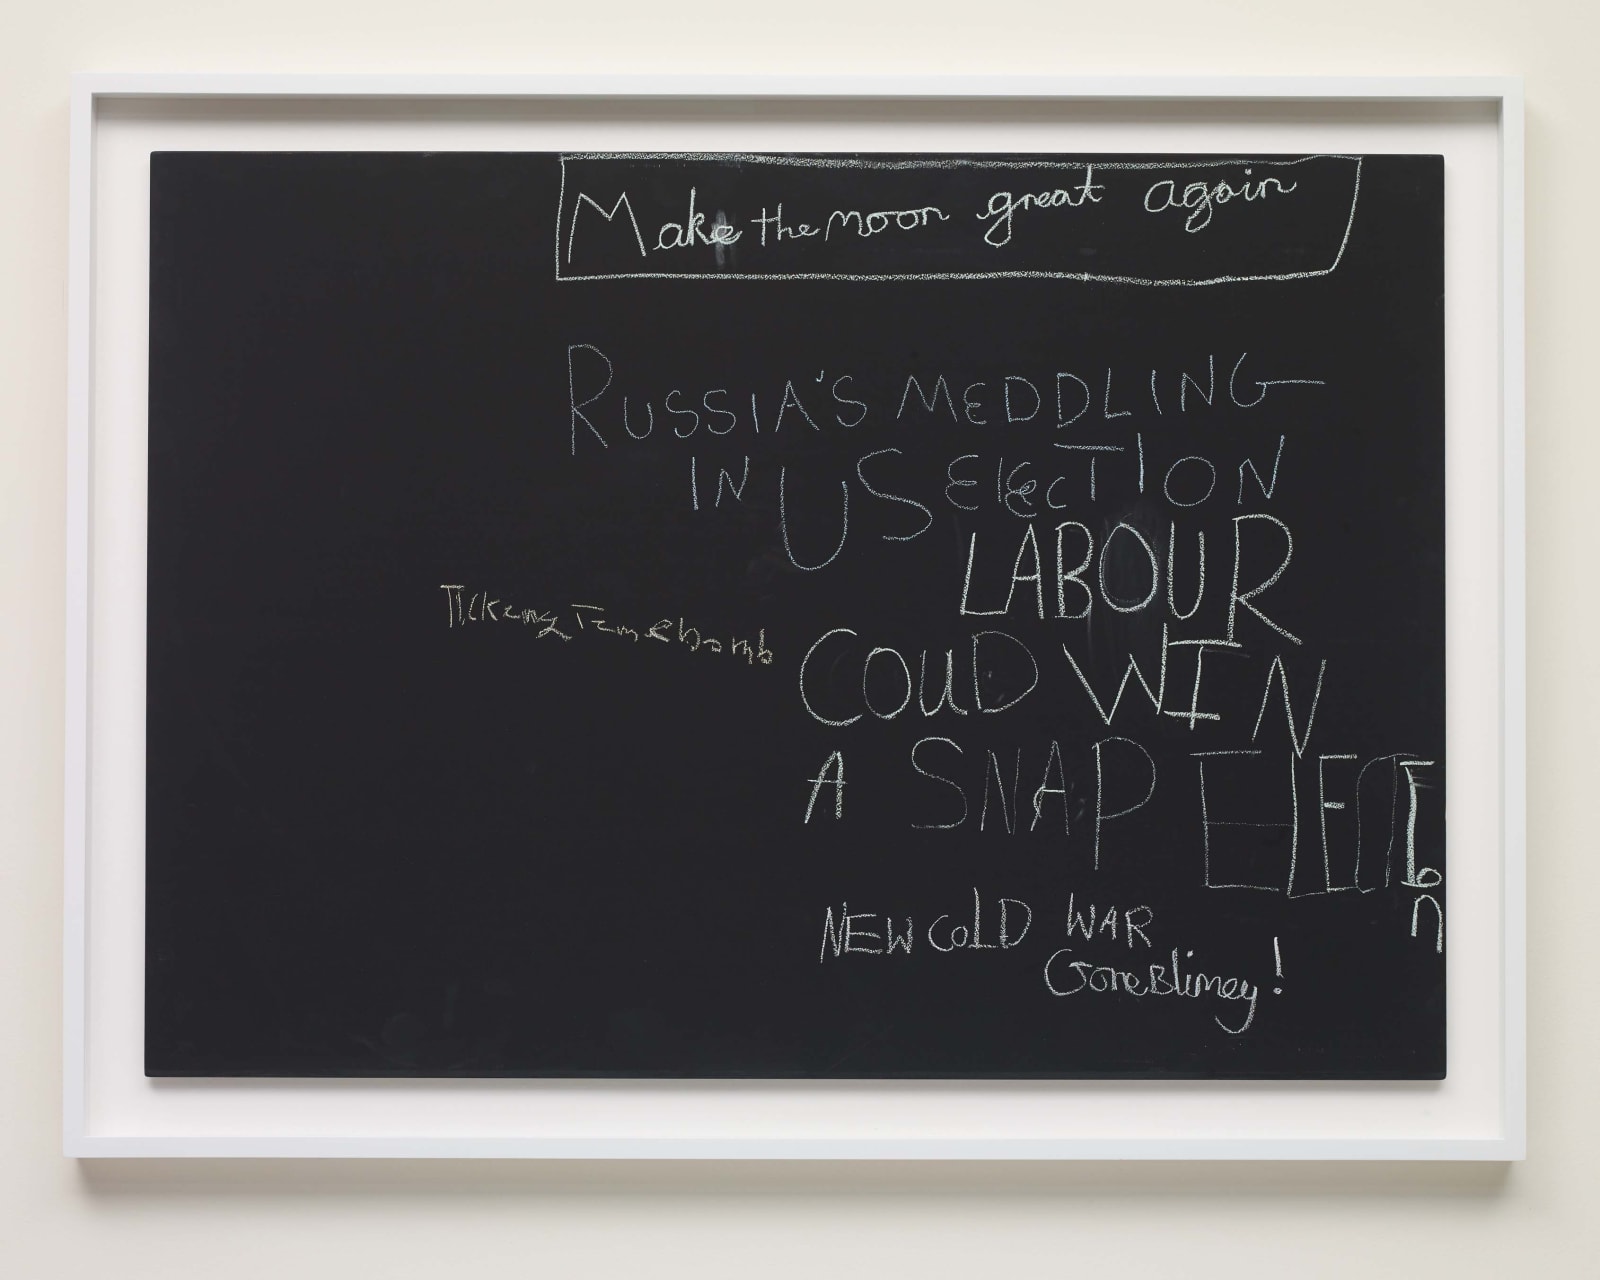 Make the moon great again
RUSSIA'S MEDDLING
IN US ElECTION
LABOUR
Ticking Timebomb
COUD WIN
A SNAP ElECTIon
NEW COLD WAR
GoreBlimey!